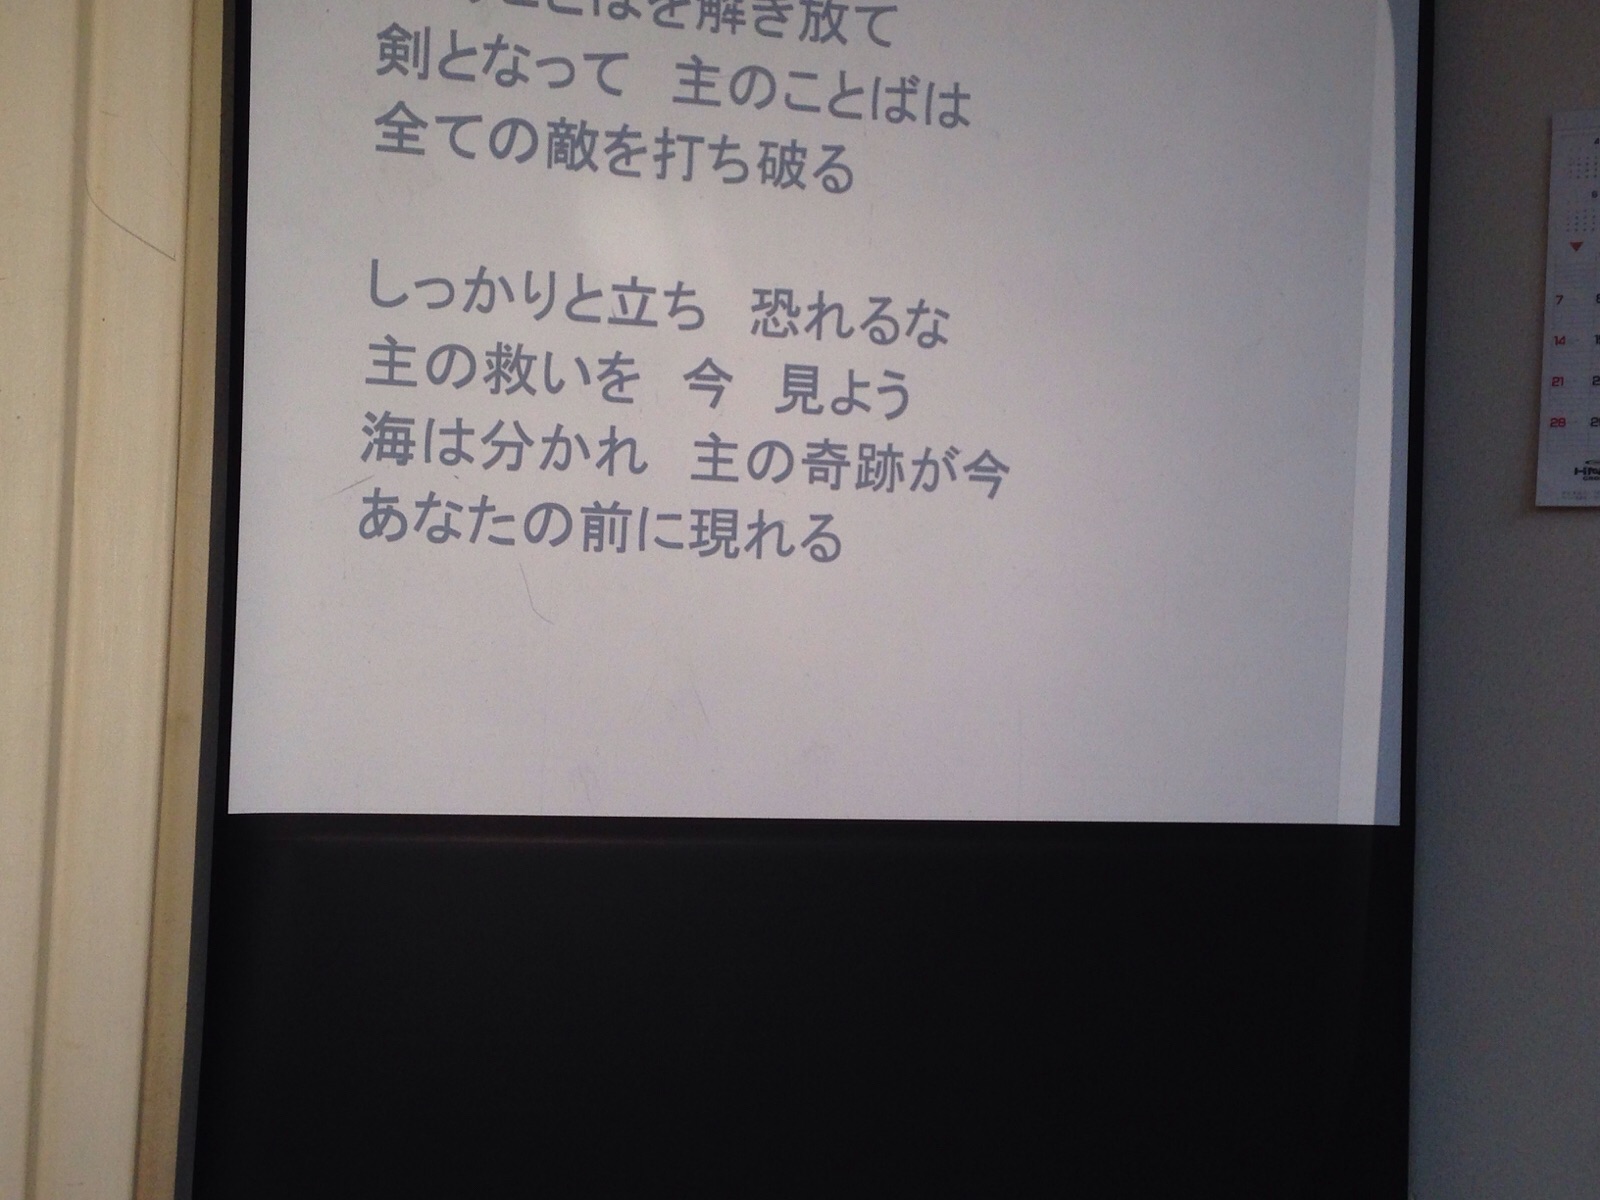 ことばを解き放て
剣となって　主のことばは
全ての敵を打ち破る
しっかりと立ち　恐れるな
主の救いを　今　見よう
海は分かれ　主の奇跡が今
あなたの前に現れる
7
14
21
28